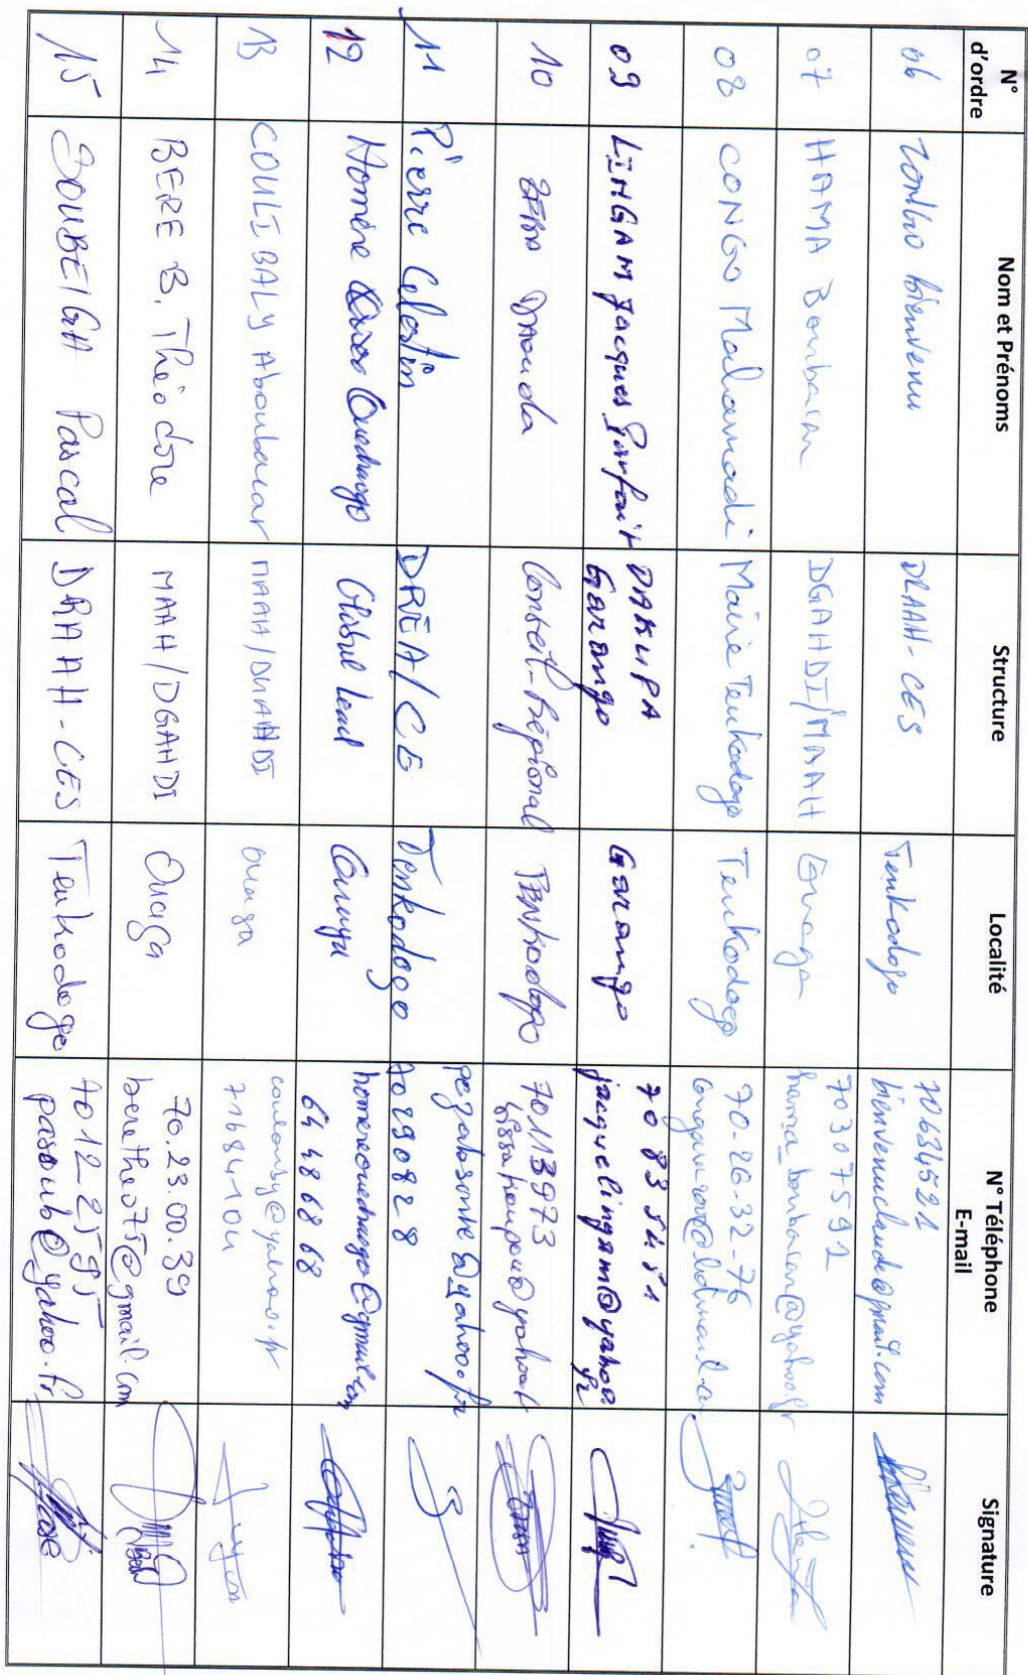 N° d'ordre Nom et Prénoms Structure Localité N° Téléphone E-mail Signature
06 Zombo bienvenu DRAAH-CES Tenkodogo 70634521 bienvenuclaude@gmail.com
07 HAMA Boubacar DGAHDI/MAAH Ouaga 70307592 hama_boubacar@yahoo.fr
08 CONGO Mahamadi Mairie Tenkodogo Tenkodogo 70-26-32-76
09 LINGAM Jacques Parfait DAKUPA Garango Garango 70 83 54 51 jacquelingam@yahoo.fr
10 Daouda Conseil-Régional TENKodogo 70113973
11 Pierre Celestin DREA/CE Tenkodogo 70290828
12 Homère Ouedraogo 64 48 68 68 homereouedraogo@gmail.com
13 COULIBALY Aboubacar MAAH/DGAHDI Ouaga 71684104
14 BERE B. Théodore MAAH/DGAHDI Ouaga 70.23.00.39 beretheo75@gmail.com
15 SOUBEIGA Pascal DRAAH-CES Tenkodogo 7012 25 95 pasoub@yahoo.fr